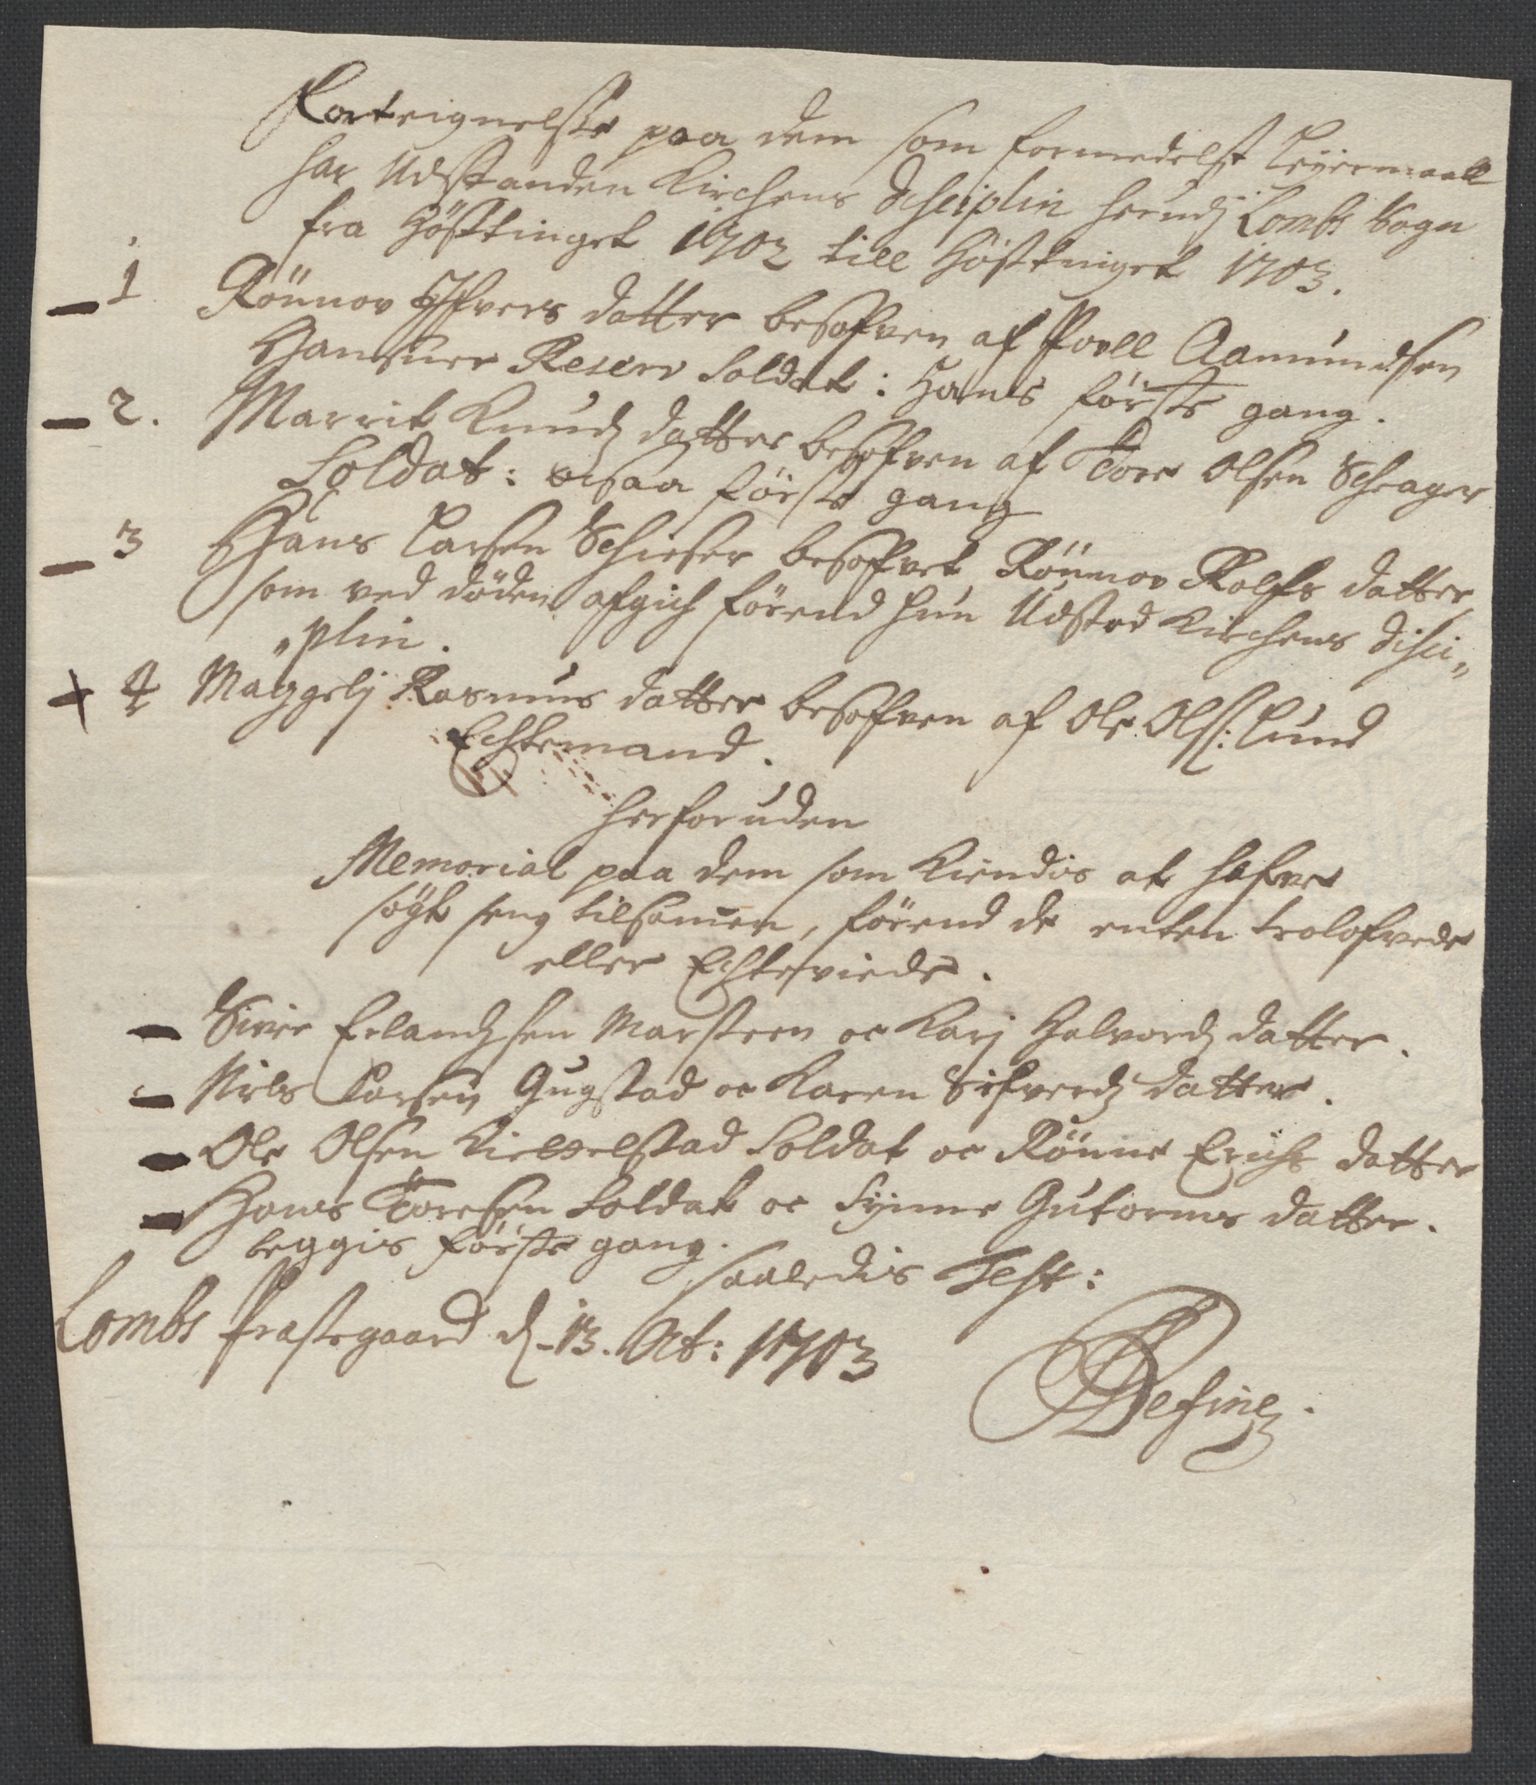 Forteignelsse paa dem som formedelst Leyermaall
har Udstanden Kirchens Dsheiplin herudj Lombs Sogn
fra Høsttinget 1702 till Høsttinget 1703.
1 Rönnov Ifvers datter besofven af Povell Aamundsen
Reserv Soldat: Hands förste gang.
2. Marrit Knudz datter besofven af Tore Olsen Schrager
Soldat: ocsaa förste gang
3 Hans Larsen Schieser besofvet Rönnov Rolfs datter
som ved döden afgich förend hun Udstod Kirchens disci„
„plin.
4 Rasmus datter besofven af Ole Olss: Lund
Echtemand.
herforuden
Memorial paa dem som Kiendis at hafve
sögt seng tilsamen, förend de enten trolofvede
eller Echteviede.
Siver Erlandzsen Marsteen oc Karj Halvordz datter.
Niels Larsen Gugstad oc Karen Sifverdz datter.
Ole Olsen Soldat oc Rönne Erichs datter
Hans Toresen Soldat oc Synne Gutorms datter.
beggis förste gang.
saaledis Test:
Lombs Præstegaard d. 13. Oct: 1703